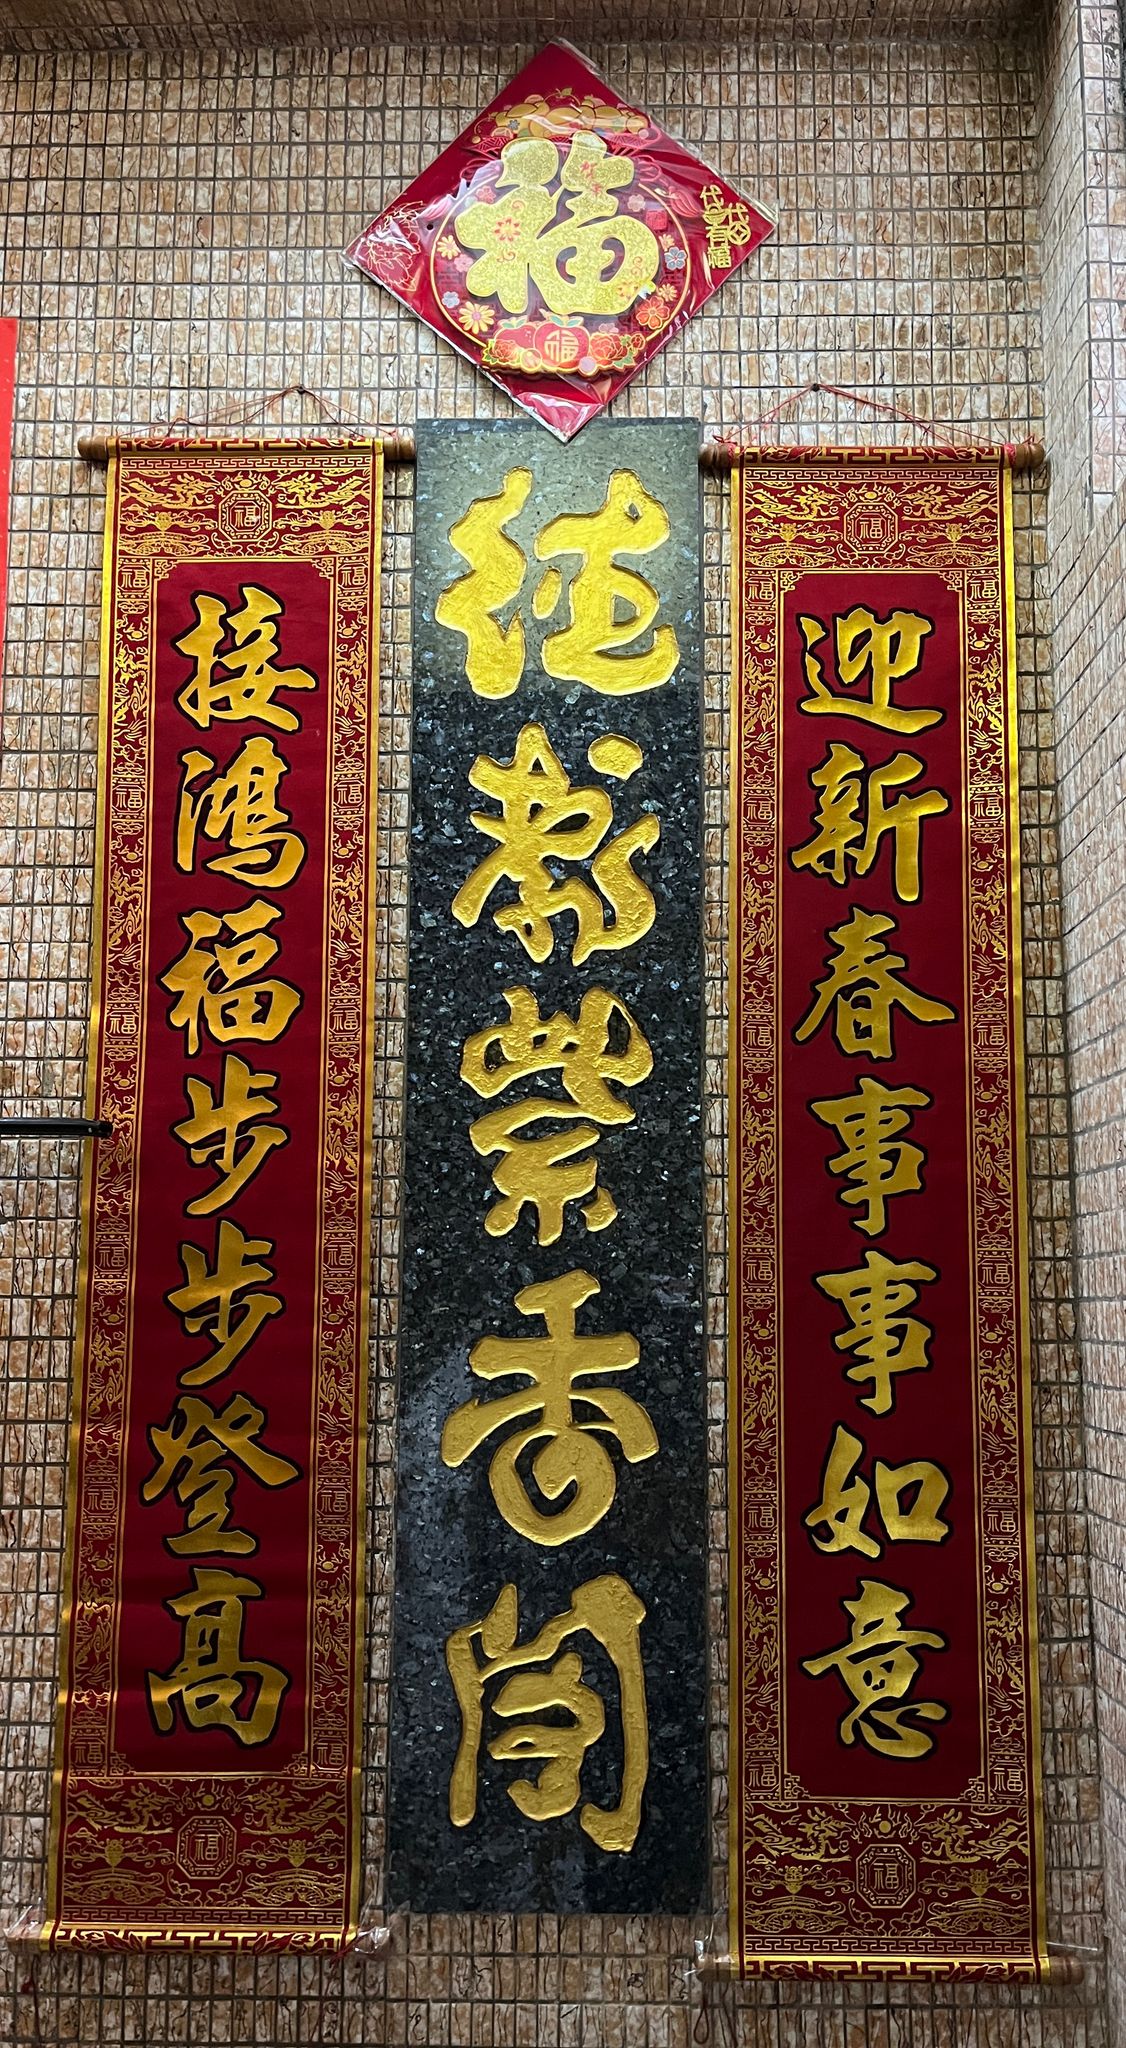 福
代代有福
福
迎新春事事如意
紫香
接鴻福步步登高